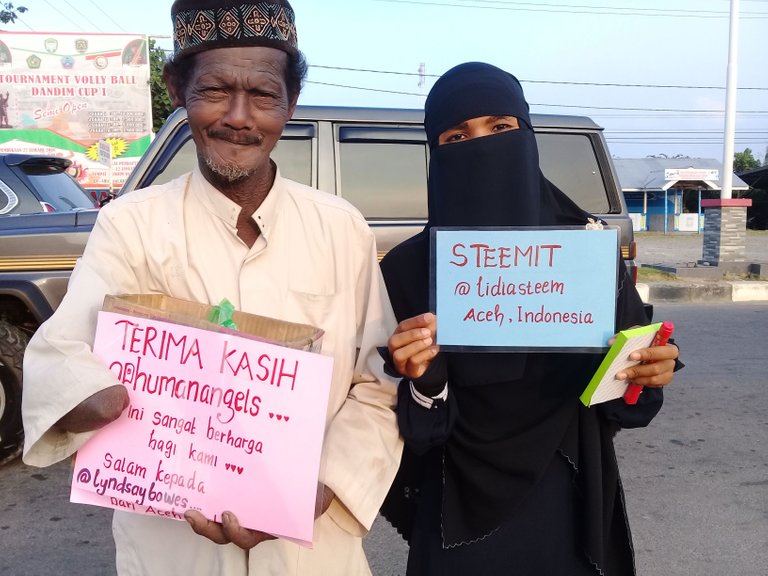 TOURNAMENT VOLLY BALL
DANDIM CUP I
Semi Open
TERIMA KASIH
@humanangels...
ini sangat berharga
bagi kami
Salam kepada
@lyndsaybowes...
Dari Aceh
STEEMIT
@lidiasteem
Aceh, Indonesia